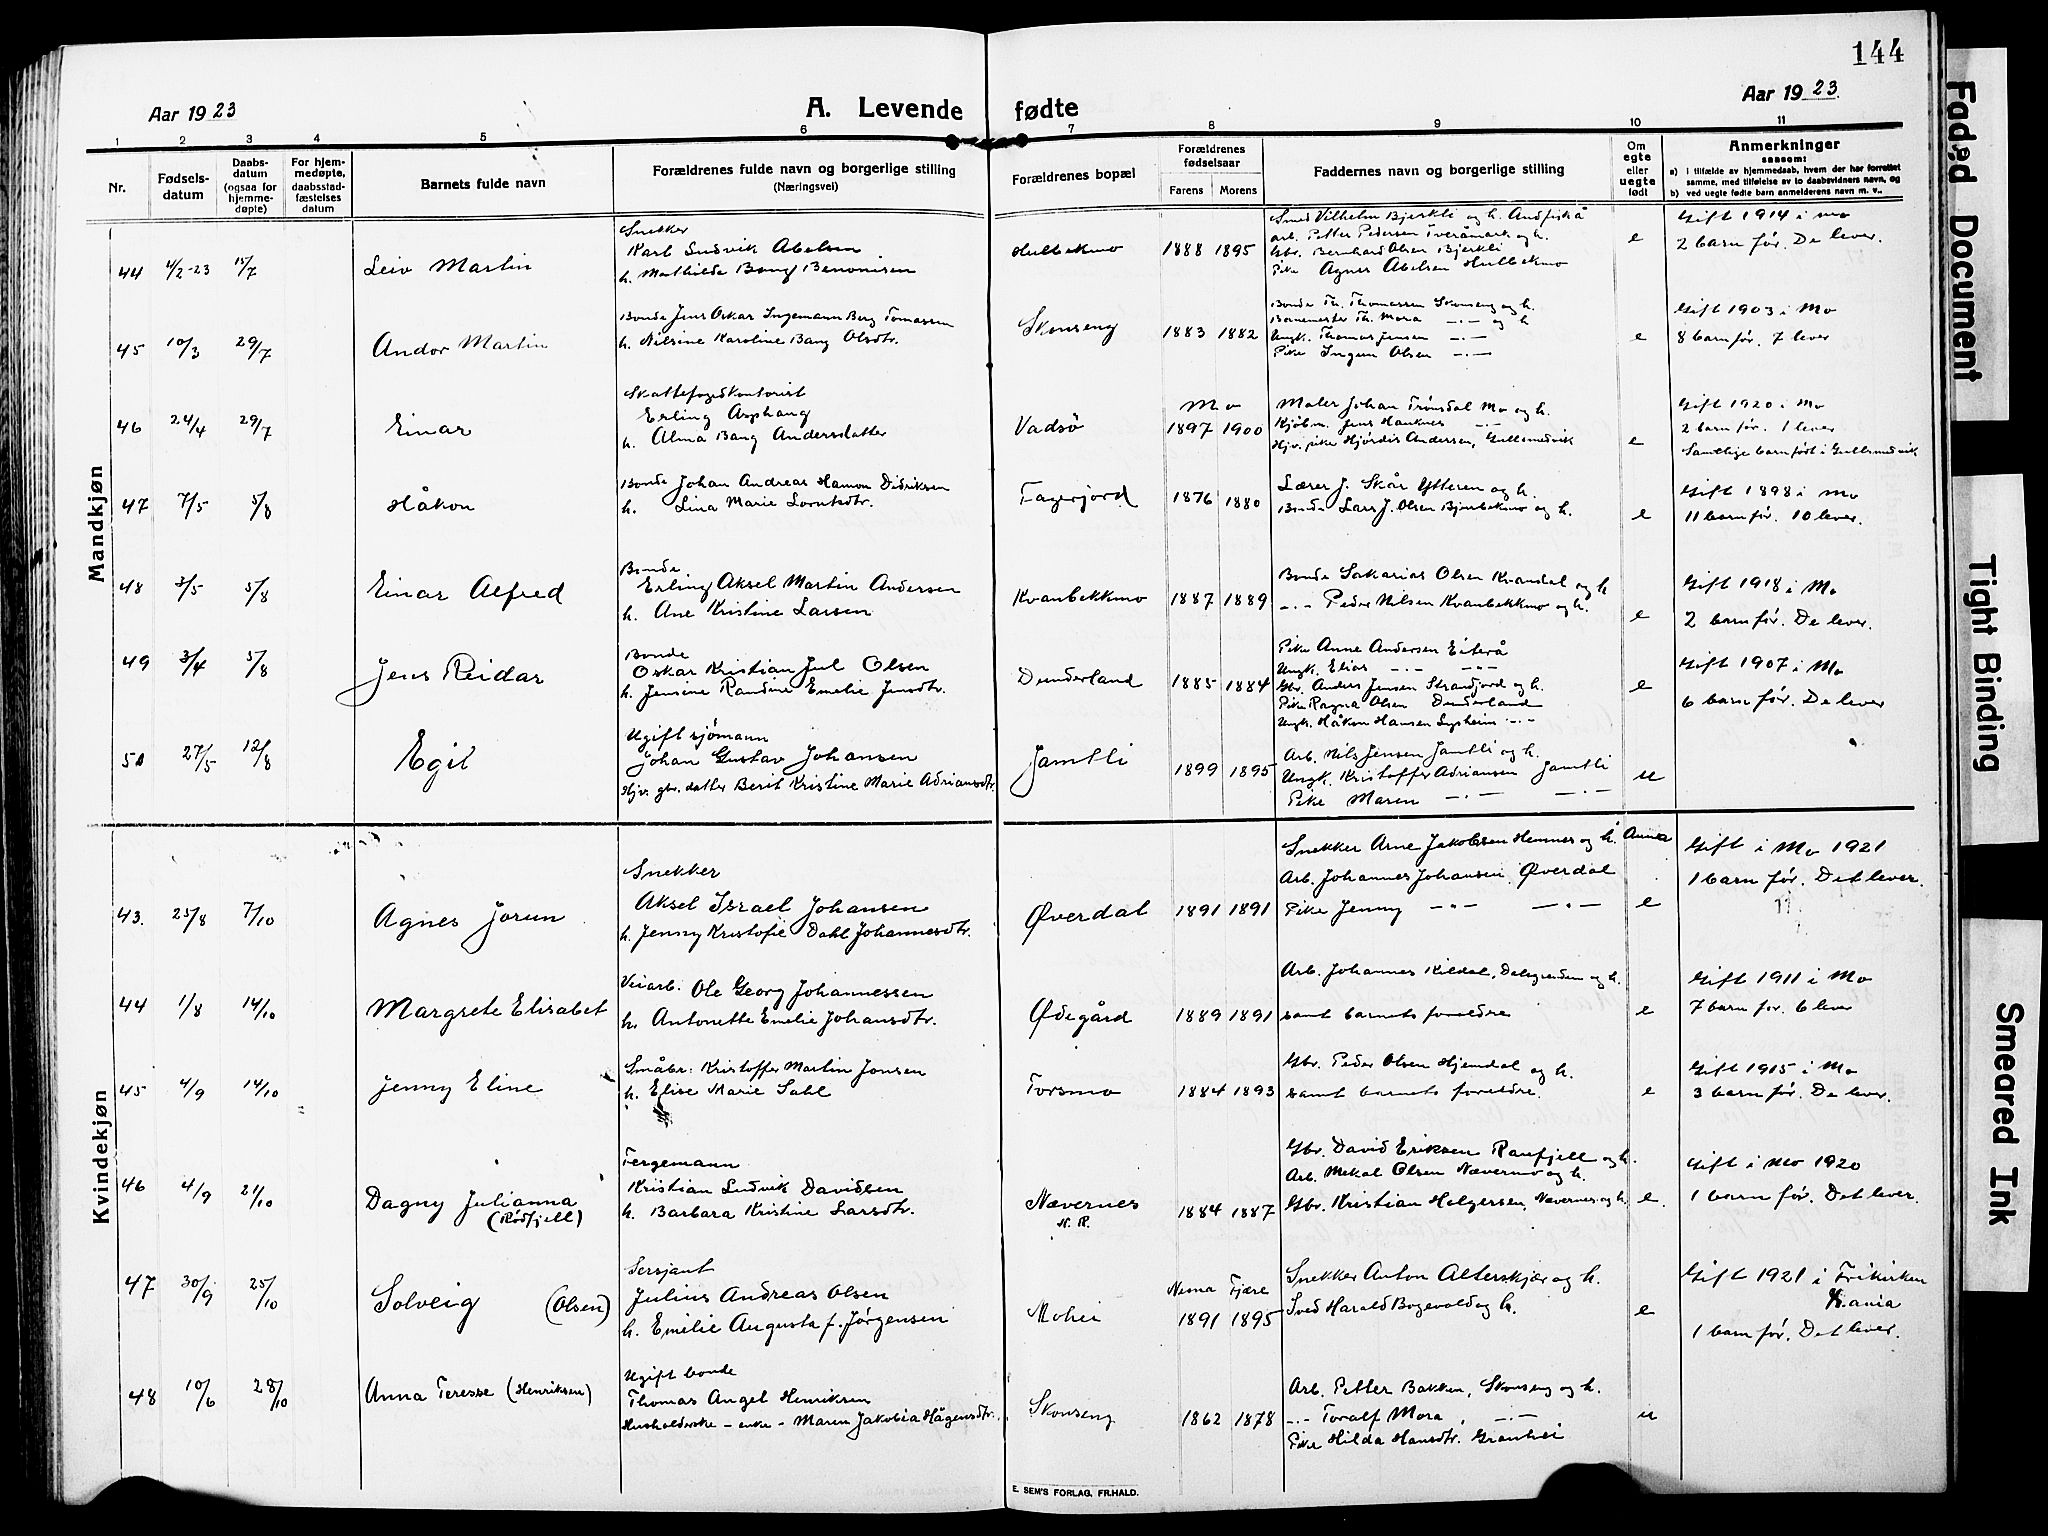 144
Aar 1923
A. Levende fødte
Aar 1923.
1 2 3 4 5 6 7 8 9 10 11
Nr.
Fødsels-
datum
Daabs-
datum
(ogsaa for
hjemme-
døpte)
For hjem-
medøpte,
daabsstad-
fæstelses
datum
Barnets fulde navn
Forældrenes fulde navn og borgerlige stilling
(Næringsvei)
Forældrenes bopæl
Forældrenes
fødselsaar
Farens Morens
Faddernes navn og borgerlige stilling
Om
egte
eller
uegte
født
Anmerkninger
saasom:
a) i tilfælde av hjemmedaab, hvem der har forrettet
samme, med tilføielse av to daabsvidners navn, og
b) ved uegte fødte barn anmelderens navn m. v..
Mandkjøn
44 4/2-23 15/7 Leiv Martin
Snekker
Karl Ludvik Abelsen
h. Mathilde Bang Benonisen
Hulbekmo 1888 1895
Smed Vilhelm Bjerkli og h. Andfiskå
arb. Petter Pedersen Tveråmark og h.
Gbr. Bernhard Olsen Bjerkli
Pike Agnes Abelsen Hulbekmo
e
Gift 1914 i Mo
2 barn før. De lever.
45 10/3 29/7 Andor Martin
Bonde Jens Oskar Ingemann Berg Tomassen
h. Nilsine Karoline Bang Olsdtr.
Skonseng 1883 1882
Bonde Th. Thomassen Skonseng og h.
Banemester Th. Mora —·— og h
Ungk. Thomas Jensen —·—
Pike Ingun Olsen —·—
e
Gift 1903 i Mo
8 barn før. 7 lever
46 24/4 29/7 Einar
Skattefogedkontorist
Erling Asphaug
h. Alma Bang Andersdatter
Vadsø
Mo
1897 1900
Maler Johan Trönsdal Mo og h.
Kjøbm. Jens Hauknes —·—
Hjv. pike Hjördis Andersen, Gullsmedvik
e
Gift 1920 i Mo
2 barn før. 1 lever
Samtlige barn født i Gullsmedvik
47 7/5 5/8 Håkon
Bonde Johan Andreas Hamon Didriksen
h. Lina Marie Lorntsdtr.
Fagerjord 1876 1880
Lærer J. Skår Ytteren og h.
Bonde Lars J. Olsen Bjørbekmo og h.
e
Gift 1898 i Mo
11 barn før. 10 lever.
48 3/5 5/8 Einar Alfred
Bonde
Erling Aksel Martin Andersen
h. Ane Kristine Larsen
Kvanbekkmo 1887 1889
Bonde Sakarias Olsen Kvandal og h
—·— Peder Nilsen Kvanbekkmo og h.
e
Gift 1918 i Mo
2 barn før. De lever.
49 3/4 5/8 Jens Reidar
Bonde
Oskar Kristian Jul Olsen
h. Jensine Randine Emelie Jensdtr.
Dunderland 1885 1884
Pike Anne Andersen Eiterå
Ungk. Elias —·— —·—
Gbr. Anders Jensen Strandjord og h.
Pike Ragna Olsen Dunderland
Ungk. Håkon Hansen —·—
e
Gift 1907 i Mo
6 barn før. De lever
50 27/5 12/8 Egil
Ugift sjømann
Johan Gustav Johansen
Hjv. gbr. datter Berit Kristine Marie Adriansdtr.
Jamtli 1899 1895
Arb. Nils Jensen Jamtli og h.
Ungk. Kristoffer Adriansen Jamtli
Pike Maren —·— —·—
u
Kvindekjøn
43. 25/8 7/10 Agnes Jorun
Snekker
Aksel Israel Johansen
h. Jenny Kristofie Dahl Johannesdtr.
Øverdal 1891 1891
Snekker Arne Jakobsen Hemnes og h. Anna
Arb. Johannes Johansen, Øverdal
Pike Jenny —·— —·—
e
Gift i Mo 1921
1 barn før. Det lever.
44 1/8 14/10 Margrete Elisabet
Veiarb. Ole Georg Johannessen
h. Antonette Emelie Johansdtr.
Ødegård 1889 1891
Arb. Johannes Kildal, Dalsgrenden og h.
samt barnets foreldre
e
Gift 1911 i Mo
7 barn før. 6 lever
45 4/9 14/10 Jenny Eline
Småbr. Kristoffer Martin Jonsen
h. Elise Marie Dahl
Torsmo 1884 1893
Gbr. Peder Olsen Hjemdal og h.
samt barnets foreldre.
e
Gift 1915 i Mo
3 barn før. De lever.
46 4/9 21/10 Dagny Julianna
(Rødfjell)
Fergemann
Kristian Ludvik Davidsen
h. Barbara Kristine Larsdtr.
Nævernes
N. R.
1884 1887
Gbr. David Eriksen Raufjell og h.
Arb. Mekal Olsen Nævermo og h.
Gbr. Kristian Helgersen, Nævernes og h.
e.
Gift i Mo 1920
1 barn før. Det lever.
47 30/9 25/10 Solveig (Olsen)
Sersjant
Julius Andreas Olsen
h. Emelie Augusta f. Jørgensen
Mohei
Nesna Fjære
1891 1895
Snekker Anton Alterskjær og h.
Sved Harald Bogevold og h.
e
Gift 1921 i Frikirken
Kr.ania
1 barn før. Det lever.
48 10/6 28/10 Anna Teresse (Henriksen)
Ugift bonde
Thomas Angel Henriksen
Husholderske – enke – Maren Jakobia Hågensdtr.
Skonseng 1862 1878
Arb. Petter Bakken, Skonseng og h.
—·— Toralf Mora, —·—
Pike Hilda Hansdtr. Granhei
u
E. SEM'S FORLAG, FR.HALD.
Faded Document
Tight Binding
Smeared Ink